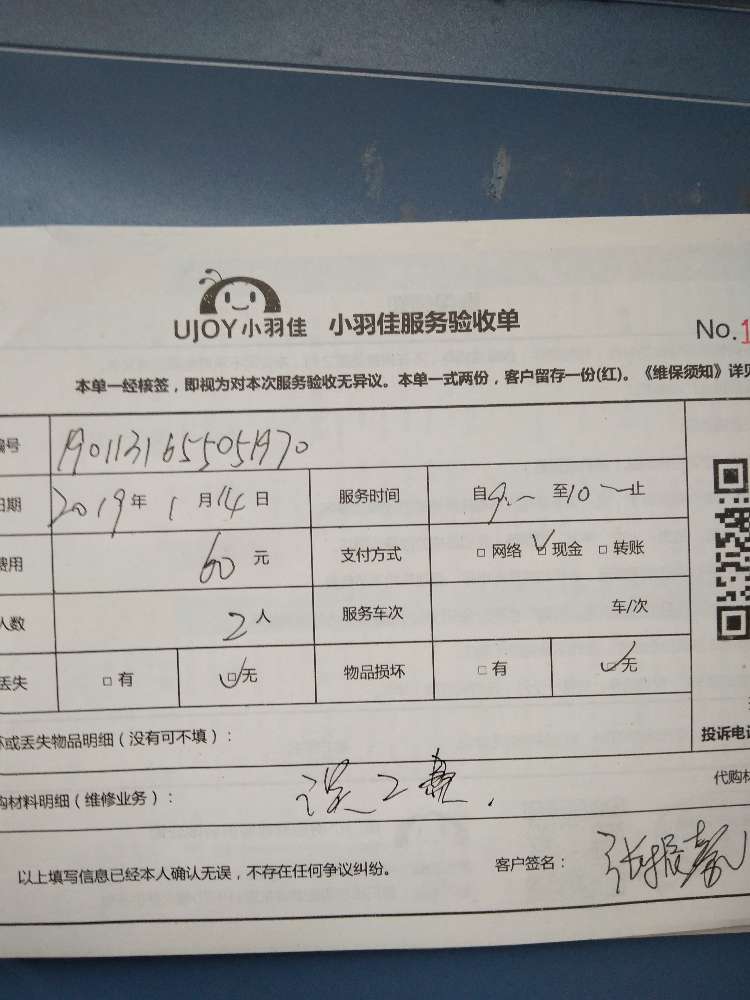 UJOY小羽佳 小羽佳服务验收单
No.1
本单一经核签，即视为对本次服务验收无异议。本单一式两份，客户留存一份(红)。《维保须知》详见
编号 1901131655051970
日期 2019年1月14日 服务时间 自9:~至10~止
费用 60元 支付方式 □网络 ☑现金 □转账
人数 2人 服务车次 车/次
丢失 □有 ☑无 物品损坏 □有 ☑无
坏或丢失物品明细（没有可不填）：
投诉电话
购材料明细（维修业务）： 误工费. 代购材
以上填写信息已经本人确认无误，不存在任何争议纠纷。 客户签名： 张